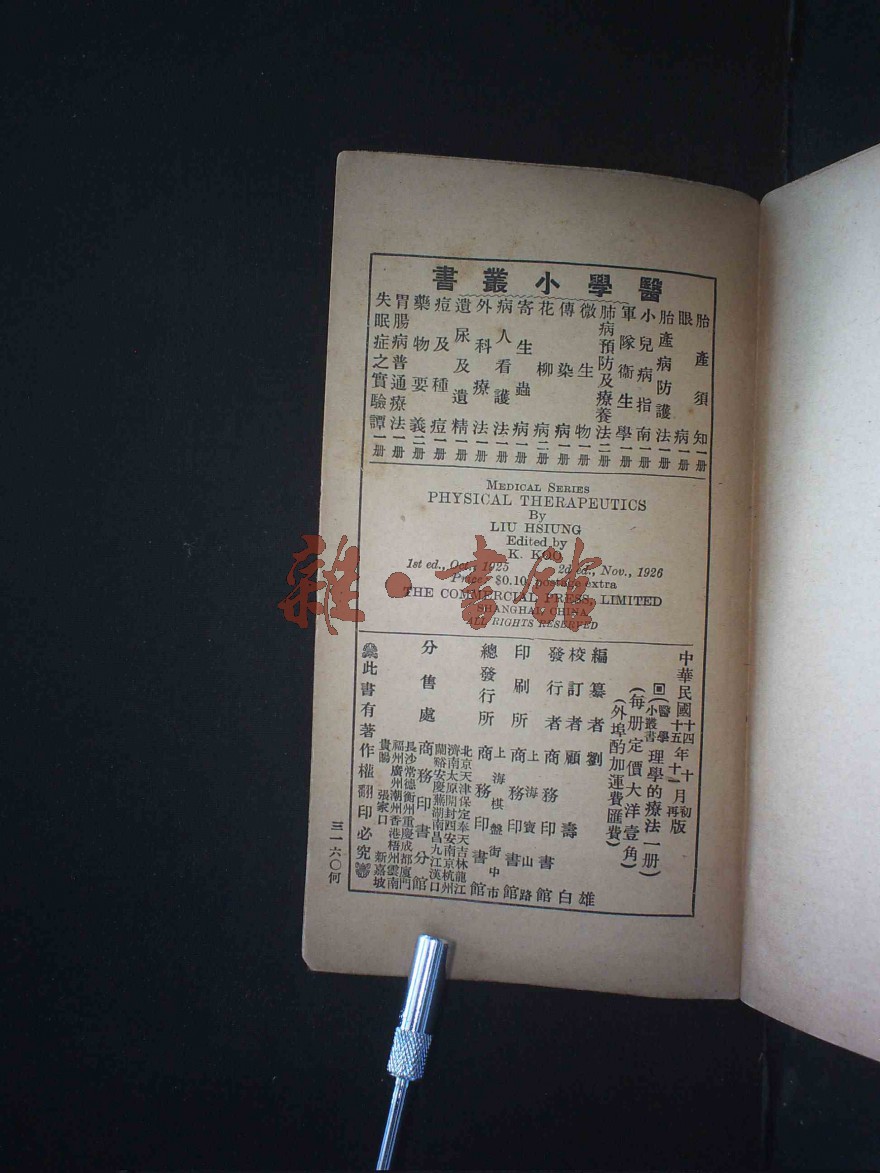 醫學小叢書
胎產須知一册
眼病一册
胎產病防護法一册
小兒病指南一册
軍隊衞生學一册
肺病預防及療養法二册
微生物一册
傳染病一册
花柳病二册
寄生蟲病一册
病人看護法一册
外科療法一册
遺尿及遺精一册
痘及種痘一册
藥物要義二册
胃腸病普通療法一册
失眠症之實驗譚一册
MEDICAL SERIES
PHYSICAL THERAPEUTICS
By
LIU HSIUNG
Edited by
K. KOO
1st ed., Oct., 1925 2d ed., Nov., 1926
Price: $0.10, postage extra
THE COMMERCIAL PRESS, LIMITED
SHANGHAI, CHINA
ALL RIGHTS RESERVED
中華民國十四年十月初版
十五年十一月再版
(醫學小叢書)理學的療法一册
(每册定價大洋壹角)
(外埠酌加運費匯費)
編纂者 劉雄
校訂者 顧壽白
發行者 商務印書館
印刷所 上海寶山路 商務印書館
總發行所 上海棋盤街中市 商務印書館
分售處 商務印書分館
北京天津保定奉天吉林龍江
濟南太原開封西安南京杭州
蘭谿安慶蕪湖南昌九江漢口
長沙常德衡州重慶成都廈門
福州廣州潮州香港梧州雲南
貴陽 張家口 新嘉坡
此書有著作權翻印必究
三一六〇何
雜·書館